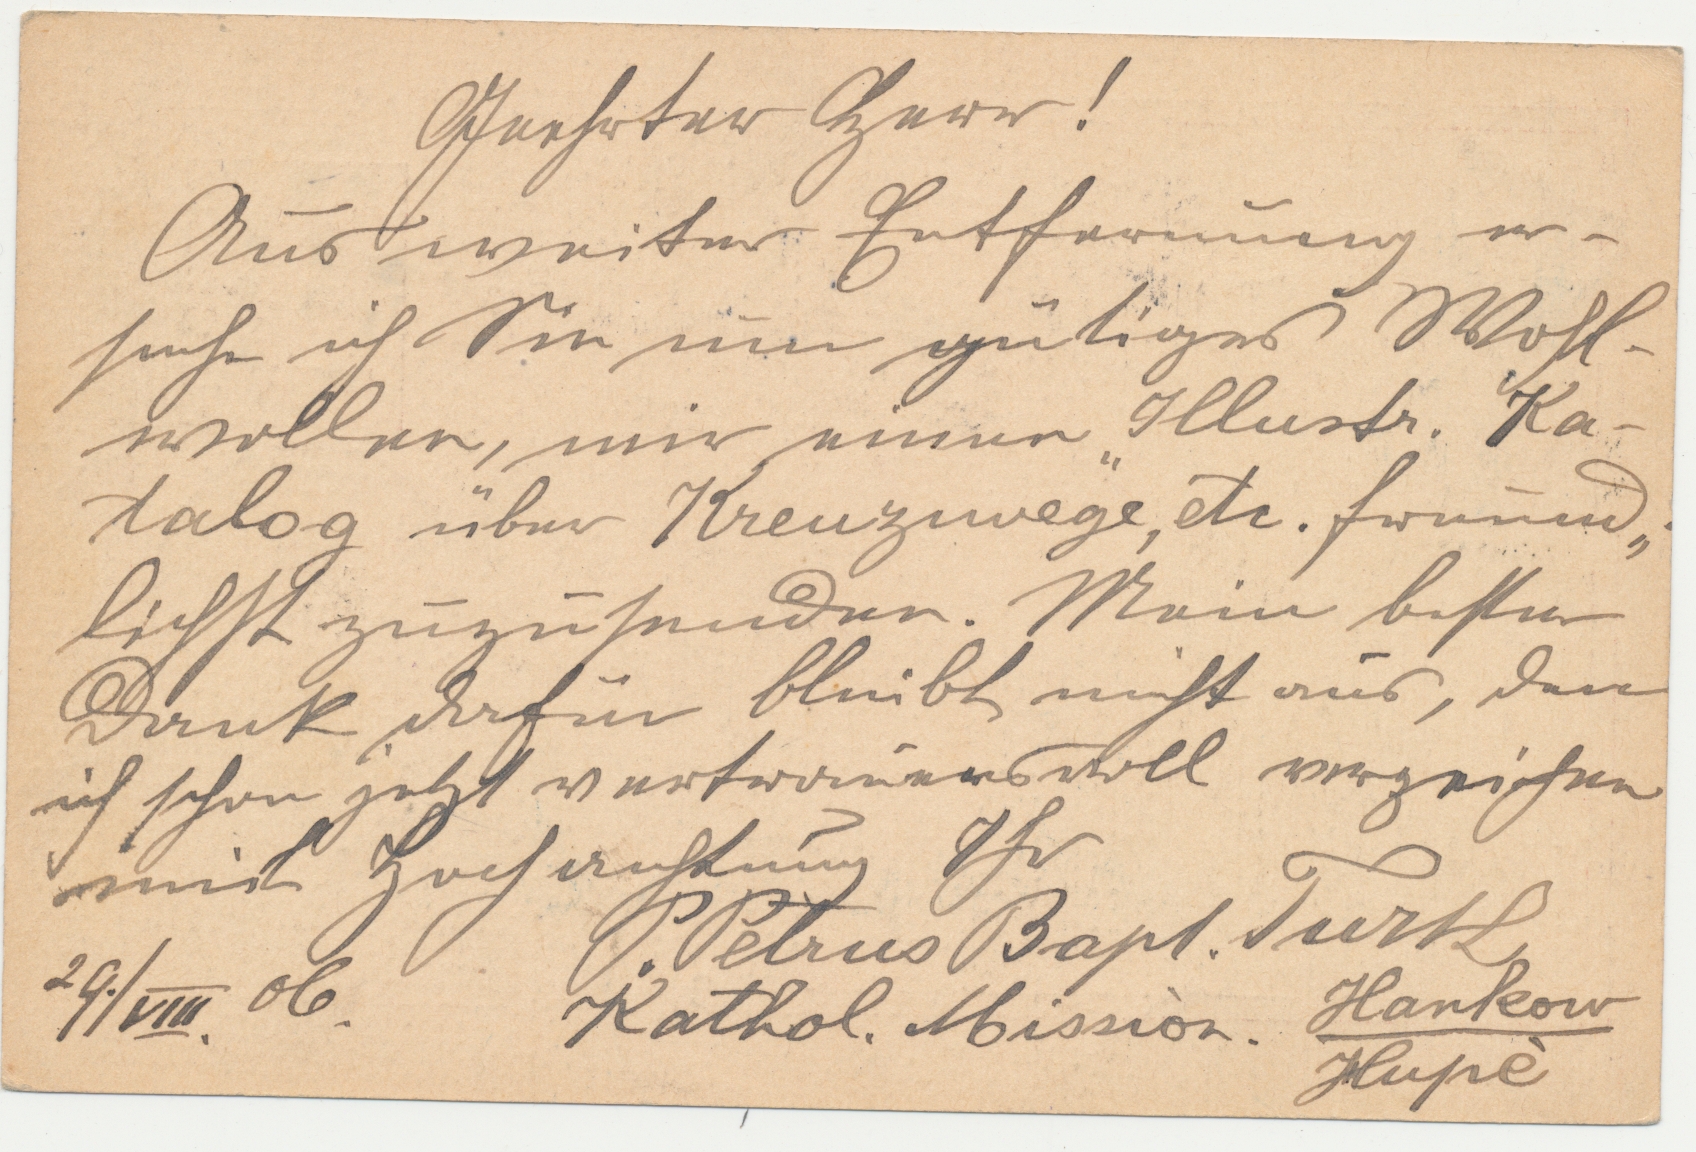 Geehrter Herr!
Aus weiter Entfernung er-
suche ich Sie um gütiges Wohl-
wollen, mir einen „Illustr. Ka-
talog über Kreuzwege“, etc. freund„
lichst zuzusenden. Mein bester
Dank dafür bleibt nicht aus, den
ich schon jetzt vertrauensvoll verzeichne
mit Hochachtung Ihr
P. Petrus Bapt. Turk
29./VIII. 06. Kathol. Mission. Hankow
Hupè